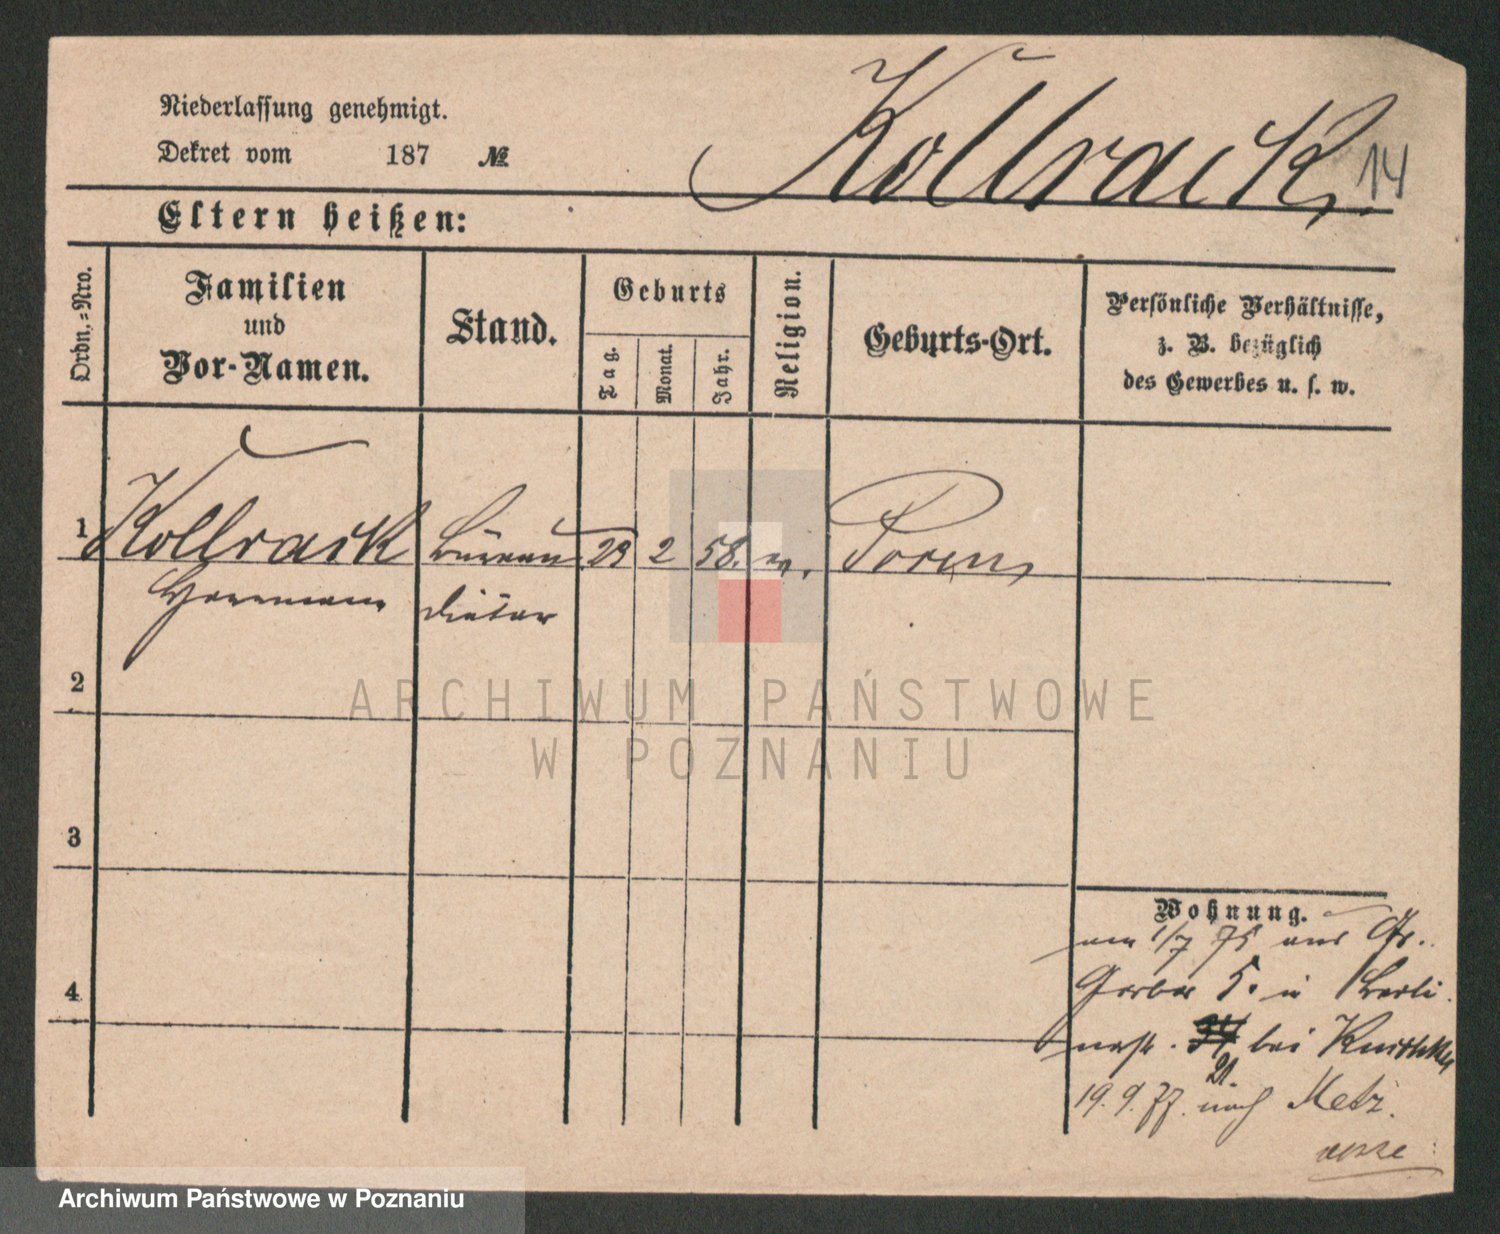 Niederlassung genehmigt.
Dekret vom 187 №
Kollrack
14
Eltern heißen:
Ordn.-Nro.
Familien
und
Vor-Namen.
Stand.
Geburts
Tag.
Monat.
Jahr.
Religion.
Geburts-Ort.
Persönliche Verhältnisse,
z. B. bezüglich
des Gewerbes u. s. w.
1 Kollrack Büreau 2 58. Posen
Herrmann Diätar
2
3
4
Wohnung.
am 1/7 75 aus Gr.
Gerber 5. in Berli
nerstr. bei
21.
19. 9. 77. nach Metz.
ARCHIWUM PAŃSTWOWE
W POZNANIU
Archiwum Państwowe w Poznaniu